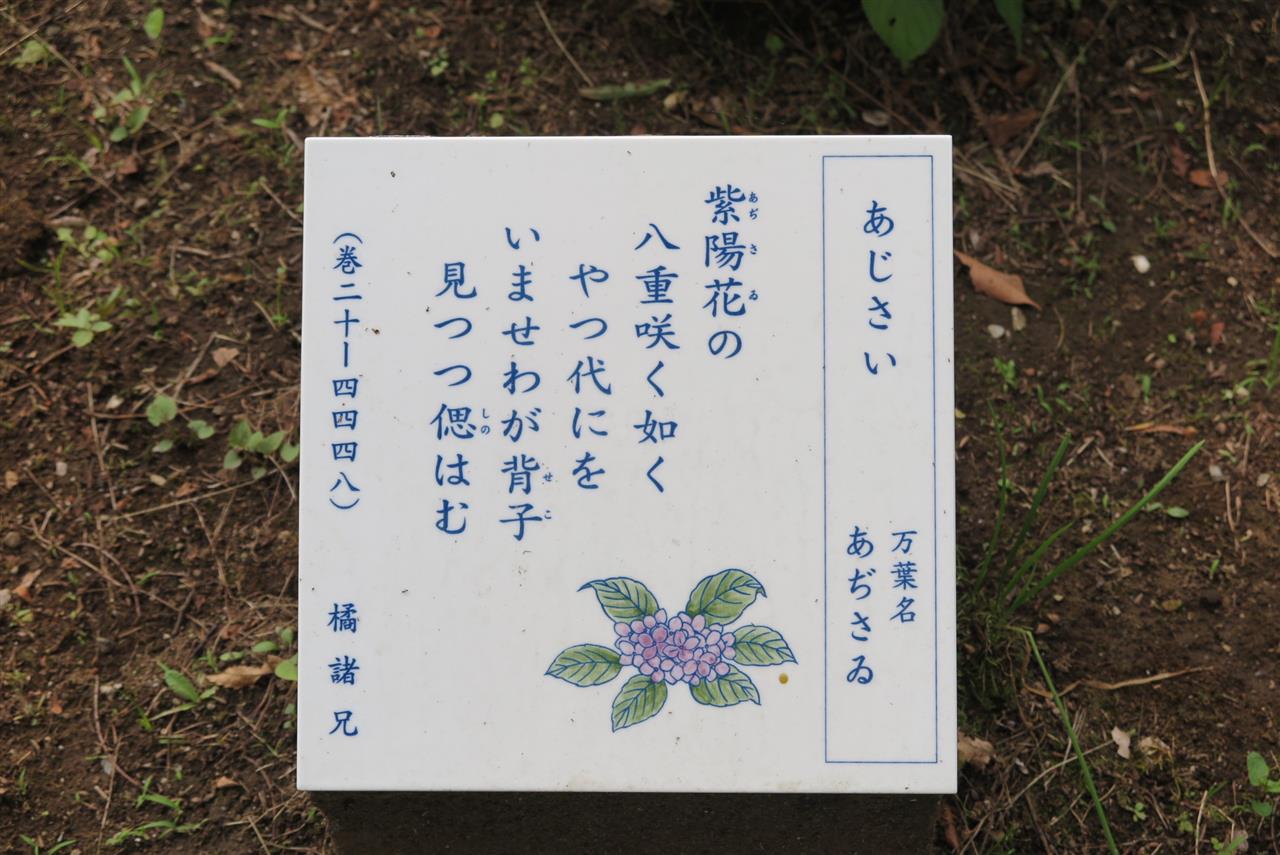 あじさい
万葉名
あぢさゐ
紫陽花の
あぢさゐ
八重咲く如く
やつ代にを
いませわが背子
せこ
見つつ偲はむ
しの
（巻二十ー四四四八）
橘諸兄